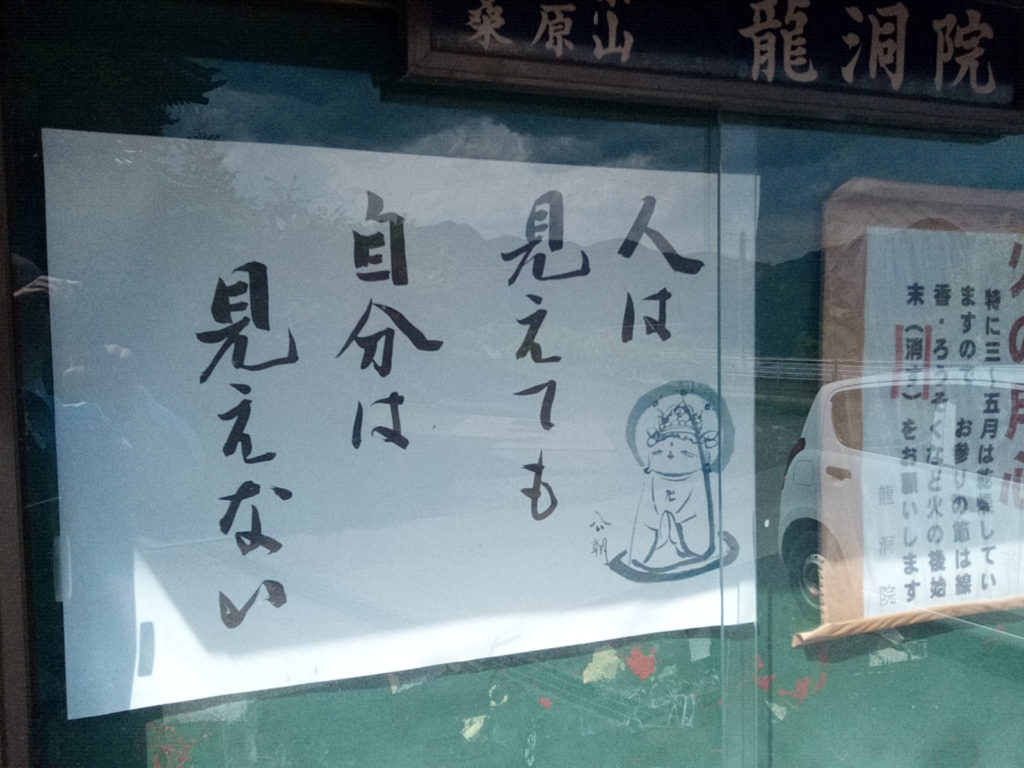 桑原山 龍洞院
人は
見えても
自分は
見えない
公朝
火の用心
特に三〜五月は乾燥してい
ますので お参りの節は線
香・ろうそくなど火の後始
末(消す)をお願いします
龍洞院